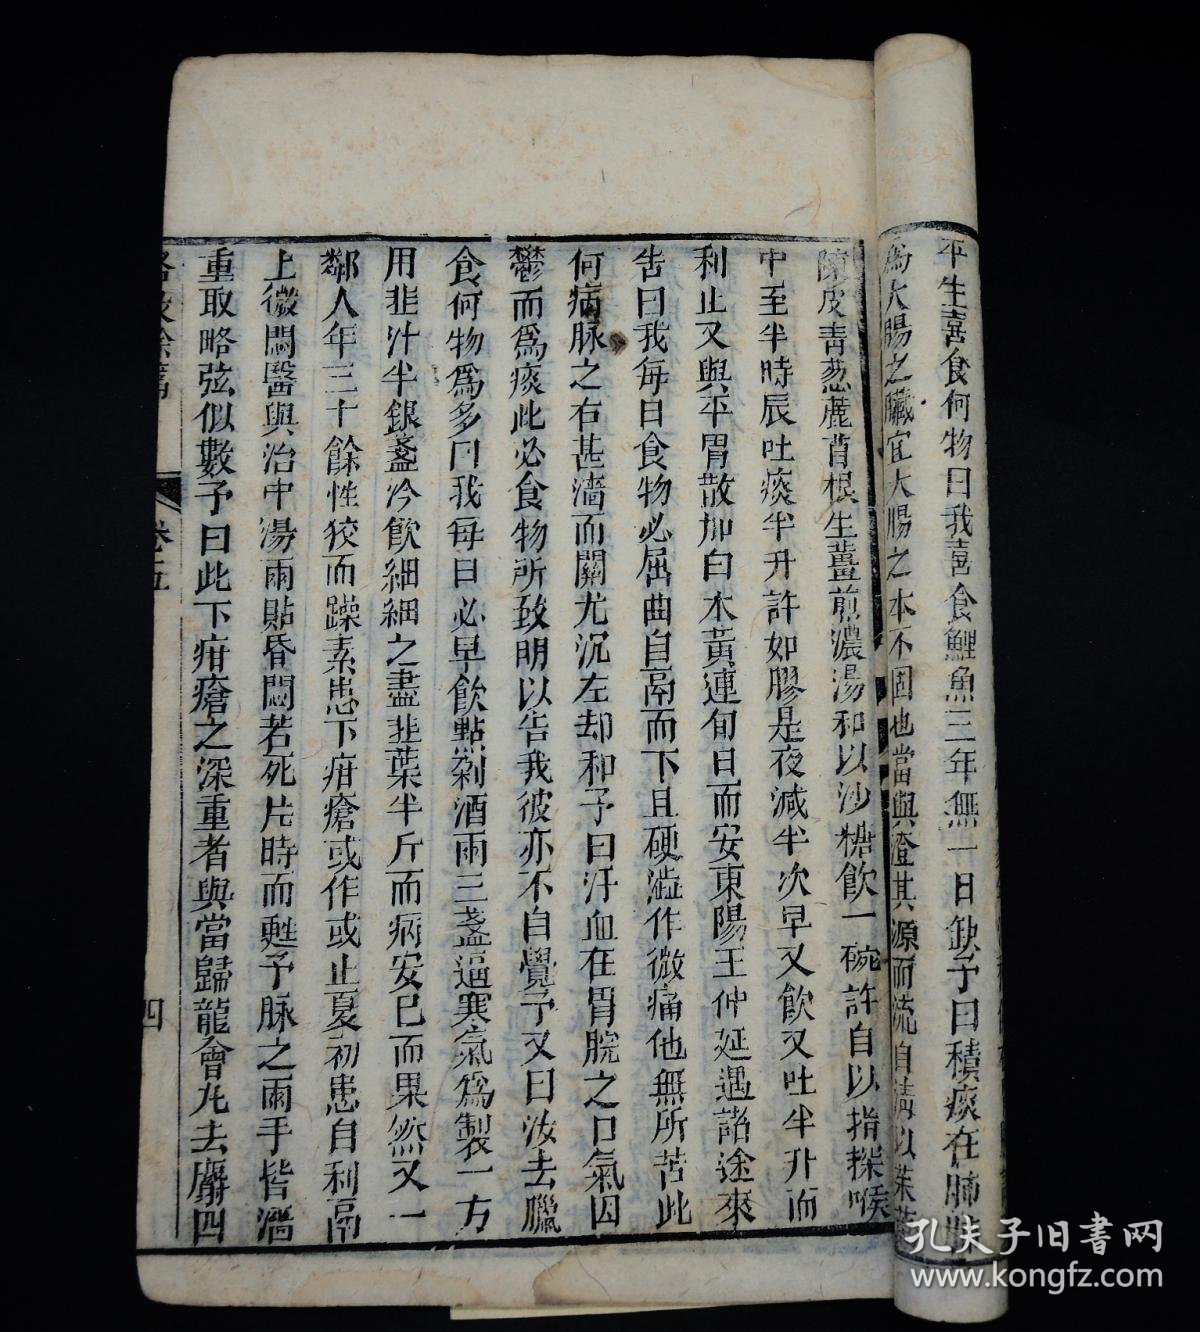 平生喜食何物曰我喜食鯉魚三年無一日缺予曰積痰在肺肺
為大腸之臟宜大腸之本不固也當與澄其源而流自清以茱萸
陳皮青葱蔍苜根生薑煎濃湯和以沙糖飲一碗許自以指探喉
中至半時辰吐痰半升許如膠是夜減半次早又飲又吐半升而
利止又與平胃散加白术黃連旬日而安東陽王仲延遇諸途來
告曰我每日食物必屈曲自鬲而下且硬澁作微痛他無所苦此
何病脉之右甚濇而關尤沉左却和予曰汙血在胃脘之口氣因
鬱而爲痰此必食物所致明以告我彼亦不自覺予又曰汝去臘
食何物爲多曰我每日必早飲點剁酒兩三盞逼寒氣爲製一方
用韭汁半銀盞冷飲細細之盡韭葉半斤而病安已而果然又一
鄰人年三十餘性狡而躁素患下疳瘡或作或止夏初患自利鬲
上微悶醫與治中湯兩貼昏悶若死片時而甦予脉之兩手皆濇
重取略弦似數予曰此下疳瘡之深重者與當歸龍會丸去麝四
卷五
四
孔夫子旧书网
www.kongfz.com